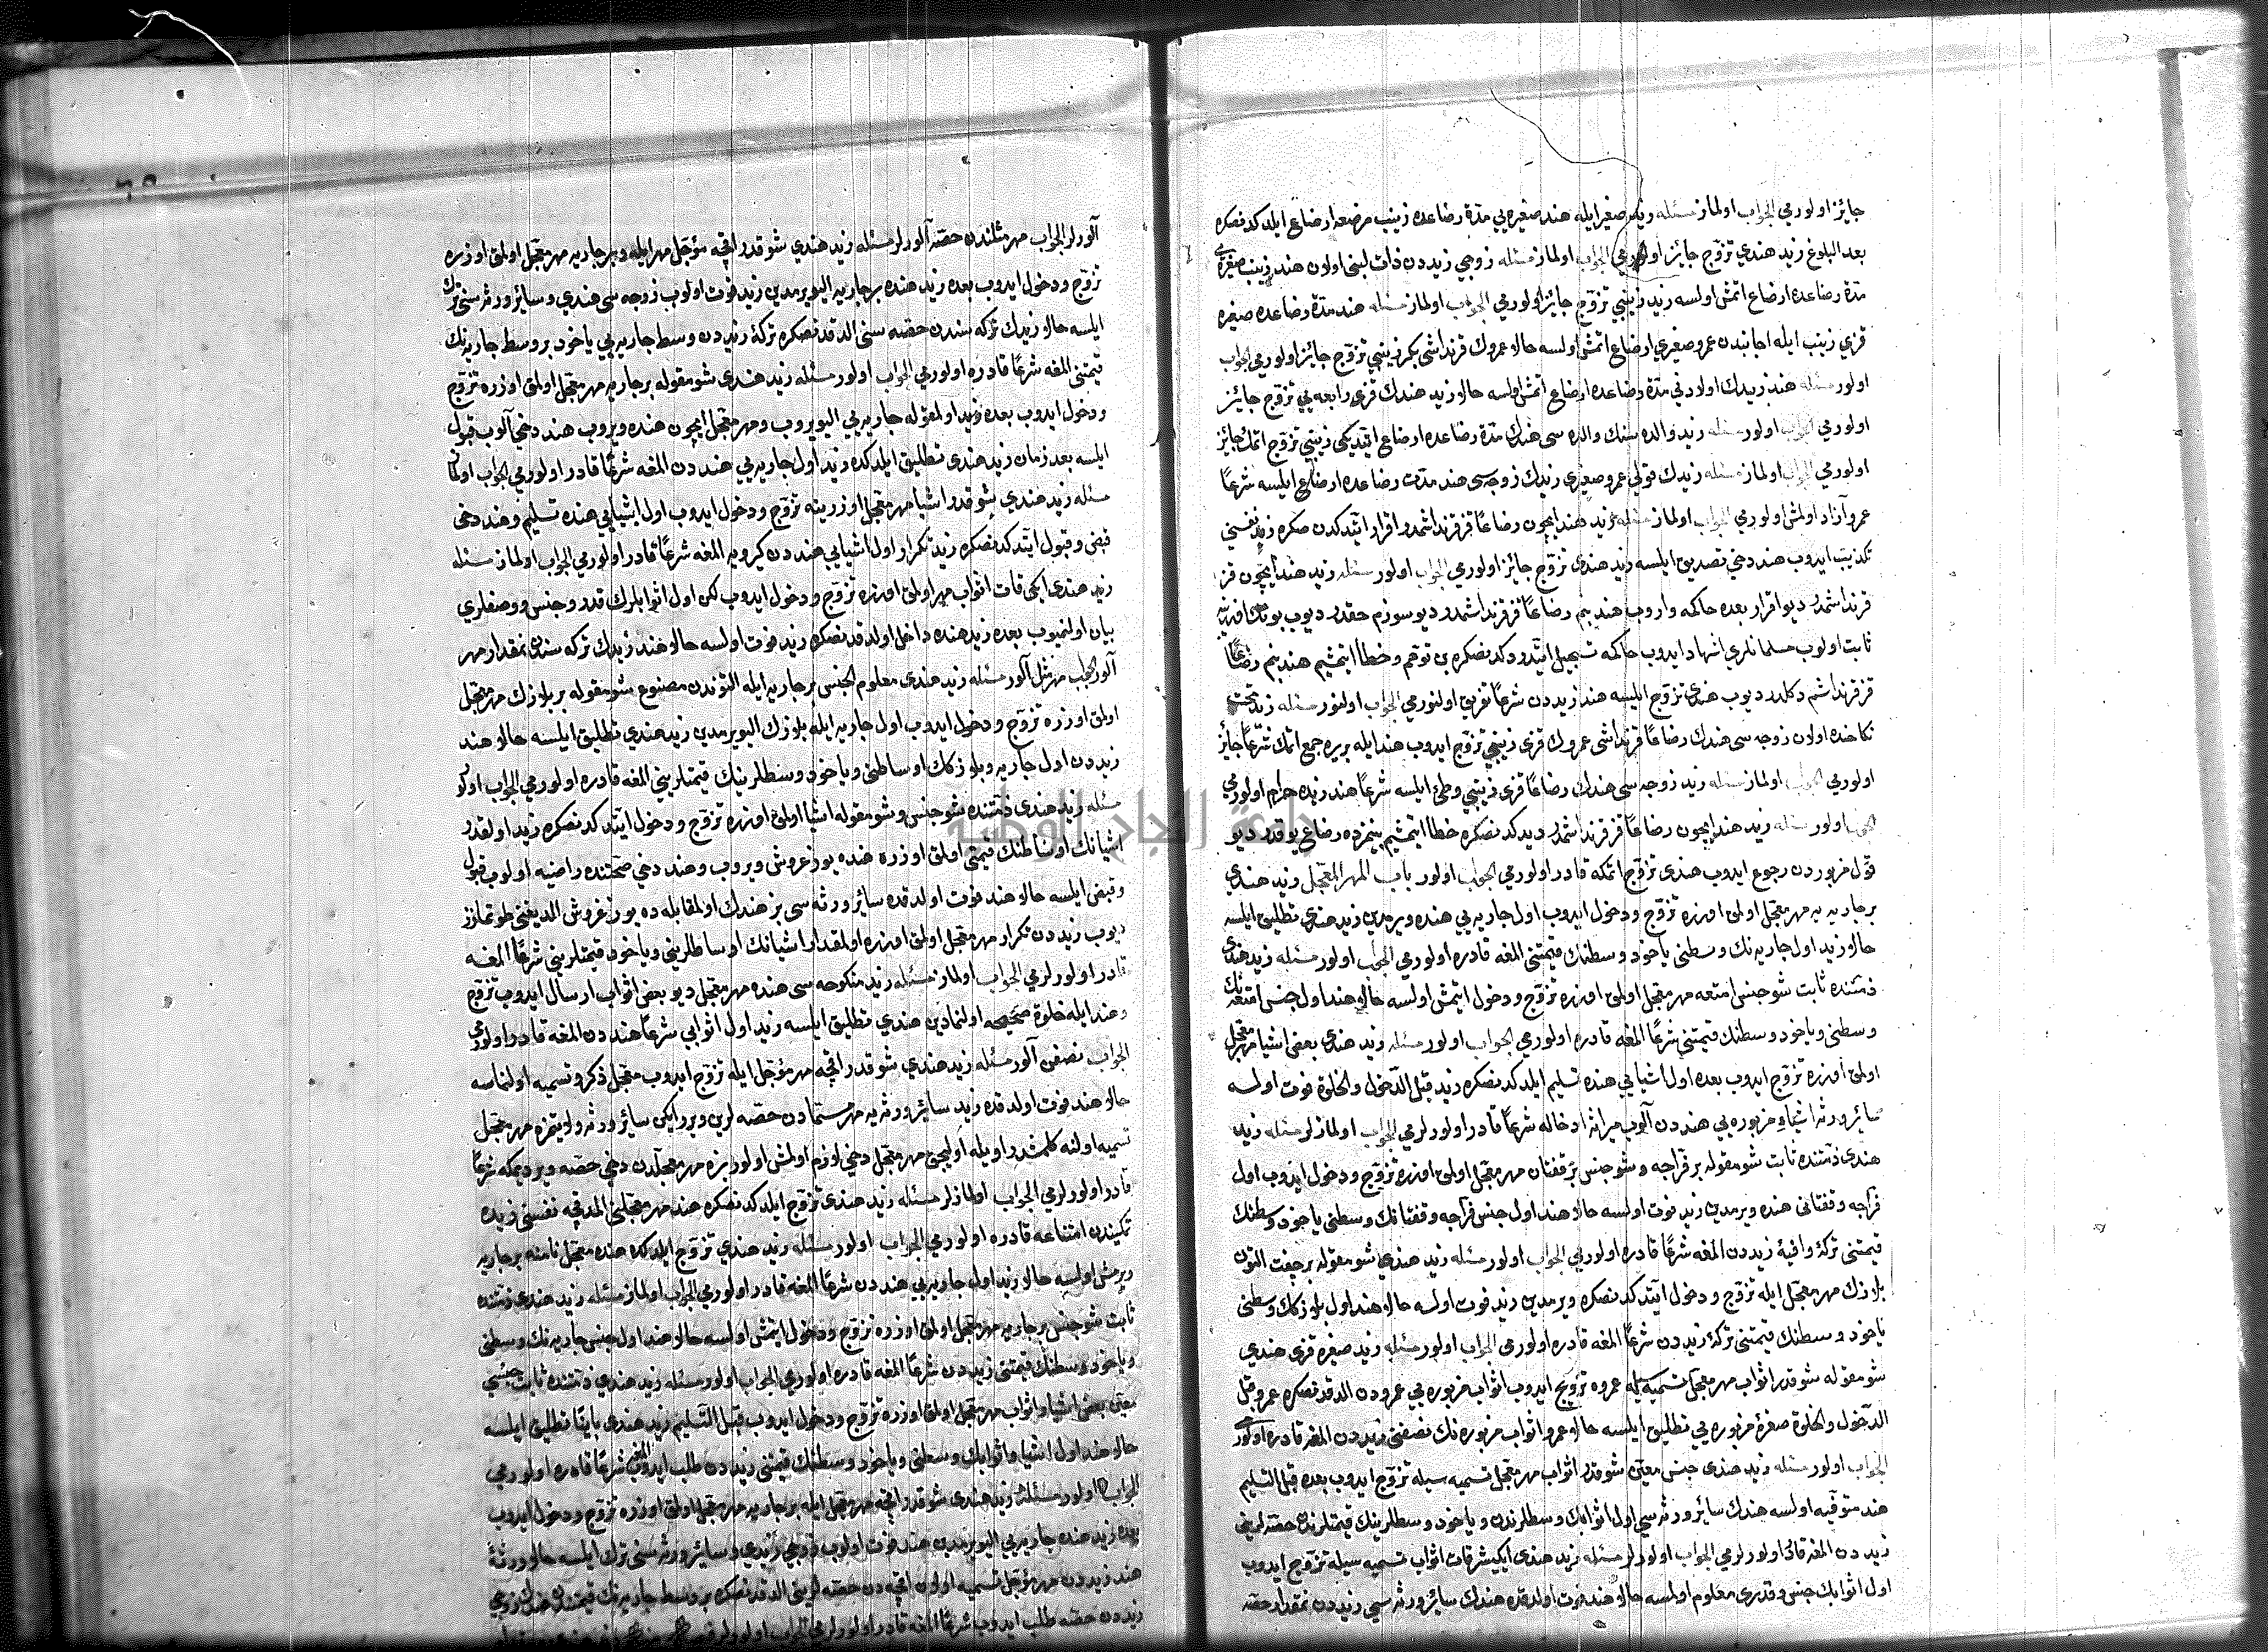 جايز اولورمي الجواب اولماز مسئله زيد صغير ايله هند صغيره يي مدة رضاعده زينب مرضعه ارضاع ايلدكدنصكره
بعد البلوغ زيد هندي تزوج جايز اولورمي الجواب اولماز مسئله زوجي زيددن ذات لبنى اولون هند زينب صغيره يي
مدة رضاعده ارضاع اتمش اولسه زيد زينبي تزوج جايز اولورمي الجواب اولماز مسئله هند مدة رضاعده صغيره
قزي زينب ايله اجانبدن عمرو صغيري ارضاع اتمش اولسه حالا عمروك قرنداشى بكر زينبي تزوج جايز اولورمي الجواب
اولور مسئله هند زيدك اولادني مدة رضاعده ارضاع اتمش اولسه حالا زيد هندك قزي رابعه يي تزوج جايز
اولورمي الجواب اولور مسئله زيد والده سنك والده سى هندك مدة رضاعده ارضاع ايتديكى زينبي تزوج اتمك جايز
اولورمي الجواب اولماز مسئله زيدك قولي عمرو صغيري زيدك زوجه سى هند مدت رضاعده ارضاع ايلسه شرعا
عمرو آزاد اولمش اولورمي الجواب اولماز مسئله زيد هند ايچون رضاعا قزقرنداشمدر اقرار ايتدكدن صكره زيد نفسني
تكذيب ايدوب هند دخي تصديق ايلسه زيد هندى تزوج جايز اولورمي الجواب اولور مسئله زيد هند ايچون قز
قرنداشمدر ديو اقرار بعده حاكمه واروب هند بنم رضاعا قزقرنداشمدر ديو سوزم حقدر ديوب بونك
ثابت اولوب مسلمانلري اشهاد ايدوب حاكمه تسجيل ايتدردكدنصكره بن توهم وخطا ايتمشيم هند بنم رضاعا
قزقرنداشم دكلدر ديوب هندى تزوج ايلسه هند زيددن شرعا تفريق اولنورمي الجواب اولنور مسئله زيد تحت
نكاحنده اولان زوجه سى هندك رضاعا قرنداشى عمروك قزى زينبي تزوج ايدوب هند ايله بريره جمع اتمك شرعا جايز
اولورمي الجواب اولماز مسئله زيد زوجه سى هندك رضاعا قزى زينبي وطئ ايلسه شرعا هند زيده حرام اولورمي
الجواب اولور مسئله زيد هند ايچون رضاعا قزقرنداشمدر ديدكدنصكره خطا ايتمشيم بينمزده رضاع يوقدر ديو
قول مزبوردن رجوع ايدوب هندى تزوج اتمكه قادر اولورمي الجواب اولور باب المهر المعجل زيد هندي
برجاريه يه مهر معجل اولمق اوزره تزوج ودخول ايدوب اول جاريه يي هنده ويرمدين زيد هندى تطليق ايلسه
حالا زيد اول جاريه نك وسطنى ياخود وسطنك قيمتني المغه قادره اولورمي الجواب اولور مسئله زيد هندى
ذمتنده ثابت شو جنس امتعه مهر معجل اولمق اوزره تزوج ودخول ايتمش اولسه حالا هند اول جنس امتعه نك
وسطنى وياخود وسطنك قيمتني شرعا المغه قادره اولورمي الجواب اولور مسئله زيد هندى بعض اشيا مهر معجل
اولمق اوزره تزوج ايدوب بعده اول اشيايي هنده تسليم ايلدكدنصكره زيد قبل الدخول والخلوة فوت اولسه
سائر ورثه اشياء مزبوره يي هنددن آلوب ميراثه ادخاله شرعا قادر اولورلرمي الجواب اولمازلر مسئله زيد
هندى ذمتنده ثابت شو مقوله بر فراجه وشو جنس برقفتان مهر معجل اولمق اوزره تزوج ودخول ايدوب اول
فراجه وقفتانى هنده ويرمدين زيد فوت اولسه حالا هند اول جنس فراجه وقفتانك وسطنى ياخود وسطنك
قيمتنى تركۀ وافيۀ زيددن المغه شرعا قادره اولورمي الجواب اولور مسئله زيد هندي شو مقوله برچفت التون
بلازك مهر معجل ايله تزوج ودخول ايتدكدنصكره ويرمدين زيد فوت اولسه حالا هند اول بلازكك وسطنى
ياخود وسطنك قيمتنى تركۀ زيددن شرعا المغه قادره اولورمي الجواب اولور مسئله زيد صغيره قزى هندي
شو مقوله شو قدر اثواب مهر معجل تسميه سيله عمروه تزويج ايدوب اثواب مزبوره يي عمرودن الدقدنصكره عمرو قبل
الدخول والخلوة صغيرۀ مزبوره يي تطليق ايلسه حالا عمرو اثواب مزبوره نك نصفنى زيددن المغه قادره اولورمي
الجواب اولور مسئله زيد هندى جنس معين شو قدر اثواب مهر معجل تسميه سيله تزوج ايدوب بعده قبل التسليم
هند متوفيه اولسه هندك سايز ورثه سي اول اثوابك وسطلرندن وياخود وسطلرينك قيمتلرندن حصه لريني
زيددن المغه قادر اولورلرمي الجواب اولورلر مسئله زيد هندى ايكيشر قات اثواب تسميه سيله تزوج ايدوب
اول اثوابك جنس وقدرى معلوم اولمسه حالا هند فوت اولدقده هندك سايز ورثه سي زيددن نمقدار حصه
آلورلر الجواب مهر مثلندن حصه آلورلر مسئله زيد هندي شو قدر اقچه مؤجل مهر ايله وبرجاريه مهر معجل اولمق اوزره
تزوج ودخول ايدوب بعده زيد هنده برجاريه اليويرمدين زيد فوت اولوب زوجه سى هندي وسايز ورثه سنى ترك
ايلسه حالا زيدك تركه سندن حصه سنى الدقدنصكره تركۀ زيددن وسط جاريه يي ياخود بر وسط جاريه نك
قيمتنى المغه شرعا قادره اولورمي الجواب اولور مسئله زيد هندى شو مقوله برجاريه مهر معجل اولمق اوزره تزوج
ودخول ايدوب بعده زيد اولمقوله جاريه يي اليويروب ومهر معجل ايچون هنده ويروب هند دخي آلوب قبول
ايلسه بعد زمان زيد هندى تطليق ايلدكده زيد اول جاريه يي هنددن المغه شرعا قادر اولورمي الجواب اولماز
مسئله زيد هندي شو قدر اشيا مهر معجل اوزرينه تزوج ودخول ايدوب اول اشيايي هنده تسليم وهند دخى
قبض وقبول ايتدكدنصكره زيد تكرار اول اشيايي هنددن كيرويه المغه شرعا قادر اولورمي الجواب اولماز مسئله
زيد هندى ايكى قات اثواب مهر اولمق اوزره تزوج ودخول ايدوب لكن اول اثوابلرك قدر وجنس ووصفلري
بيان اولنميوب بعده زيد هنده داخل اولدقدنصكره زيد فوت اولسه حالا هند زيدك تركه سندن نمقدار مهر
آلور الجواب مهر مثل آلور مسئله زيد هندى معلوم الجنس برجاريه ايله التوندن مصنوع شو مقوله بر بلازك مهر معجل
اولمق اوزره تزوج ودخول ايدوب اول جاريه ايله بلازك اليويرمدين زيد هندي تطليق ايلسه حالا هند
زيددن اول جاريه وبلازكك اوساطنى وياخود وسطلرينك قيمتلريني المغه قادره اولورمي الجواب اولور
مسئله زيد هندى ذمتنده شو جنس وشو مقوله اشيا اولمق اوزره تزوج ودخول ايتدكدنصكره زيد اولقدر
اشيانك اوساطنك قيمتى اولمق اوزره هنده يوز غروش ويروب وهند دخي صحتنده راضيه اولوب قبول
وقبض ايلسه حالا هند فوت اولدقده سائر ورثه سى بز هندك اولمقابله ده يوز غروش الديغنى طوتمازز
ديوب زيددن تكرار مهر معجل اولمق اوزره اولمقدار اشيانك اوساطلريني وياخود قيمتلريني شرعا المغه
قادر اولورلرمي الجواب اولماز مسئله زيد منكوحه سى هنده مهر معجل ديو بعض اثواب ارسال ايدوب تزوج
وهند ايله خلوة صحيحه اولنمادين هندي تطليق ايلسه زيد اول اثوابي شرعا هنددن المغه قادر اولورمي
الجواب نصفن آلور مسئله زيد هندي شو قدر اقچه مهر مؤجل ايله تزوج ايدوب معجل ذكر وتسميه اولنماسه
حالا هند فوت اولدقده زيد سائر ورثه يه مهر مسمادن حصه لرين ويرر ايكن سائر ورثه ولايتمزه مهر معجل
تسميه اولنه كلمشدر اويله اوليجق مهر معجل دخي لازم اولمش اولور بزه مهر معجلدن دخى حصه وير ديمكه شرعا
قادر اولورلرمي الجواب اولمازلر مسئله زيد هندى تزوج ايلدكدنصكره هند مهر معجلني المدقچه نفسنى زيده
تمكيندن امتناعه قادره اولورمي الجواب اولور مسئله زيد هندي تزوج ايلدكده هنده معجل نامنه برجاريه
ويرمش اولسه حالا زيد اول جاريه يي هنددن شرعا المغه قادر اولورمي الجواب اولماز مسئله زيد هندى ذمتنده
ثابت شو جنس برجاريه مهر معجل اولمق اوزره تزوج ودخول ايتمش اولسه حالا هند اول جنس جاريه نك وسطنى
وياخود وسطنك قيمتنى زيددن شرعا المغه قادره اولورمي الجواب اولور مسئله زيد هندي ذمتنده ثابت جنسي
معين بعض اشيا واثواب مهر معجل اولمق اوزره تزوج ودخول ايدوب قبل التسليم زيد هندى باينا تطليق ايلسه
حالا هند اول اشيا واثوابك وسطنى وياخود وسطنك قيمتنى زيددن طلب ايدوب المغه شرعا قادره اولورمي
الجواب اولور مسئله زيد هندى شو قدر اقچه مهر مؤجل ايله برجاريه مهر معجل اولمق اوزره تزوج ودخول ايدوب
بعده زيد هنده جاريه يي اليويرمدين هند فوت اولوب زوجي زيدي وسايز ورثه سنى ترك ايلسه حالا ورثۀ
هند زيددن مهر مؤجل تسميه اولان اقچه دن حصه لريني الدقدنصكره بر وسط جاريه نك قيمتندن هندك زوجي
زيددن حصه طلب ايدوب شرعا المغه قادر اولورلرمي الجواب اولورلر